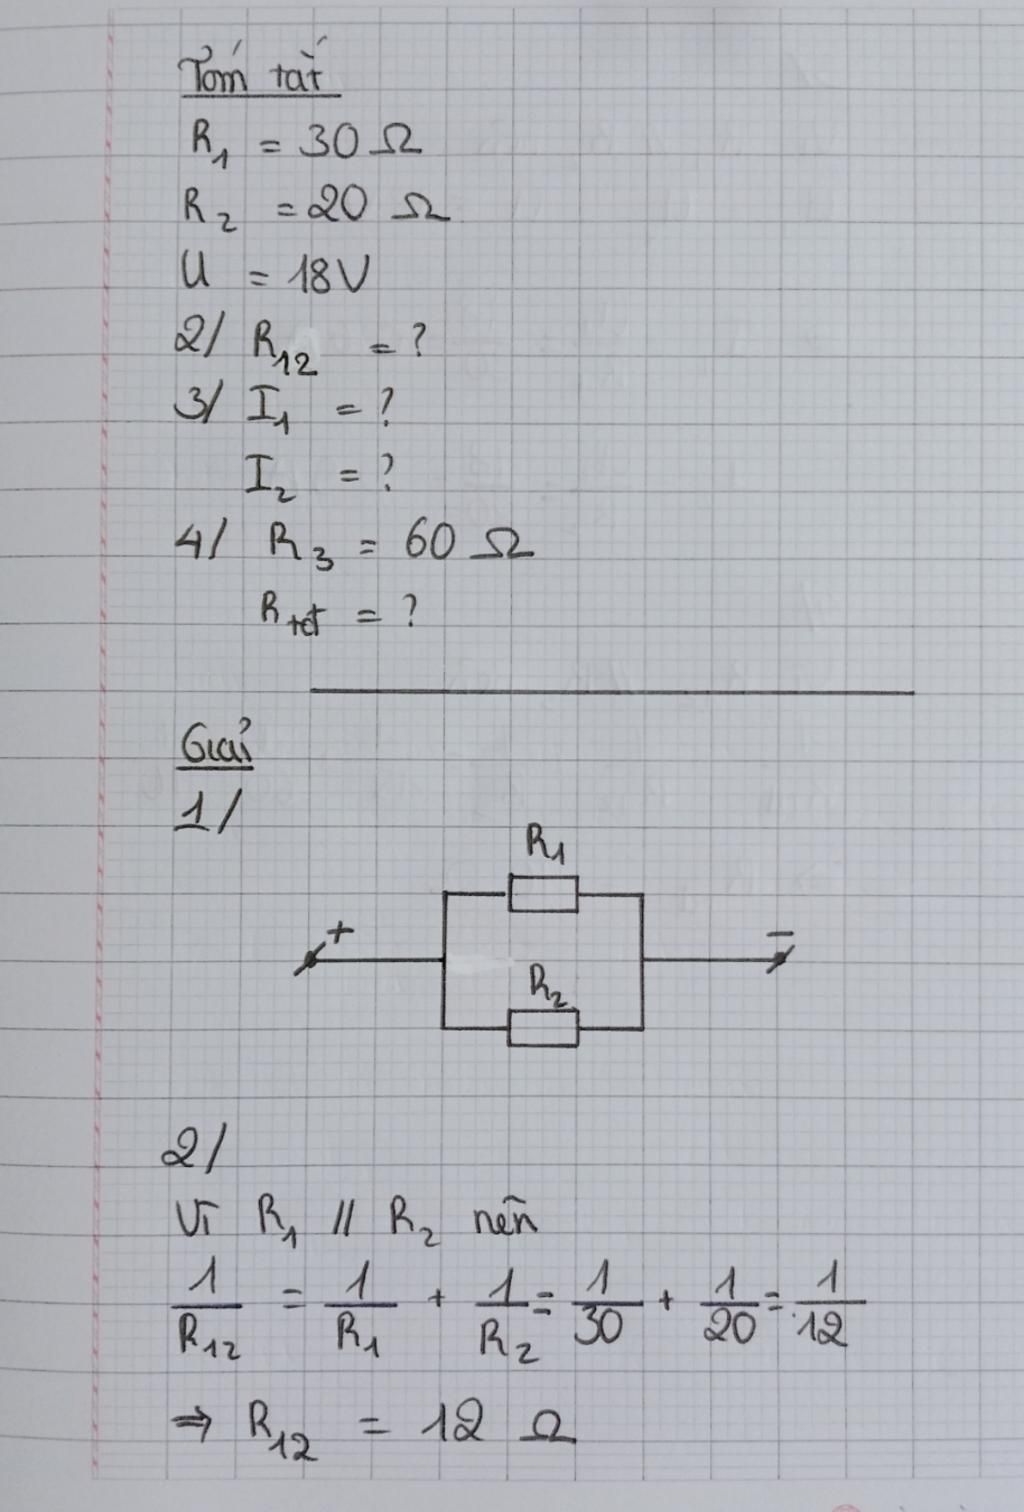 Tóm tắt
R₁ = 30 Ω
R₂ = 20 Ω
U = 18V
2/ R₁₂ = ?
3/ I₁ = ?
I₂ = ?
4/ R₃ = 60 Ω
Rtđ = ?
Giải
1/
R₁
+ −
R₂
2/
Vì R₁ // R₂ nên
1/R₁₂ = 1/R₁ + 1/R₂ = 1/30 + 1/20 = 1/12
⇒ R₁₂ = 12 Ω